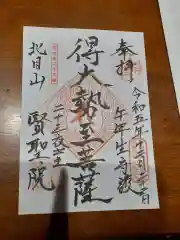 奉拝
令和五年十二月二十三日
午年生守護
得大勢至菩薩
二十三夜尊
北目山
賢聖院